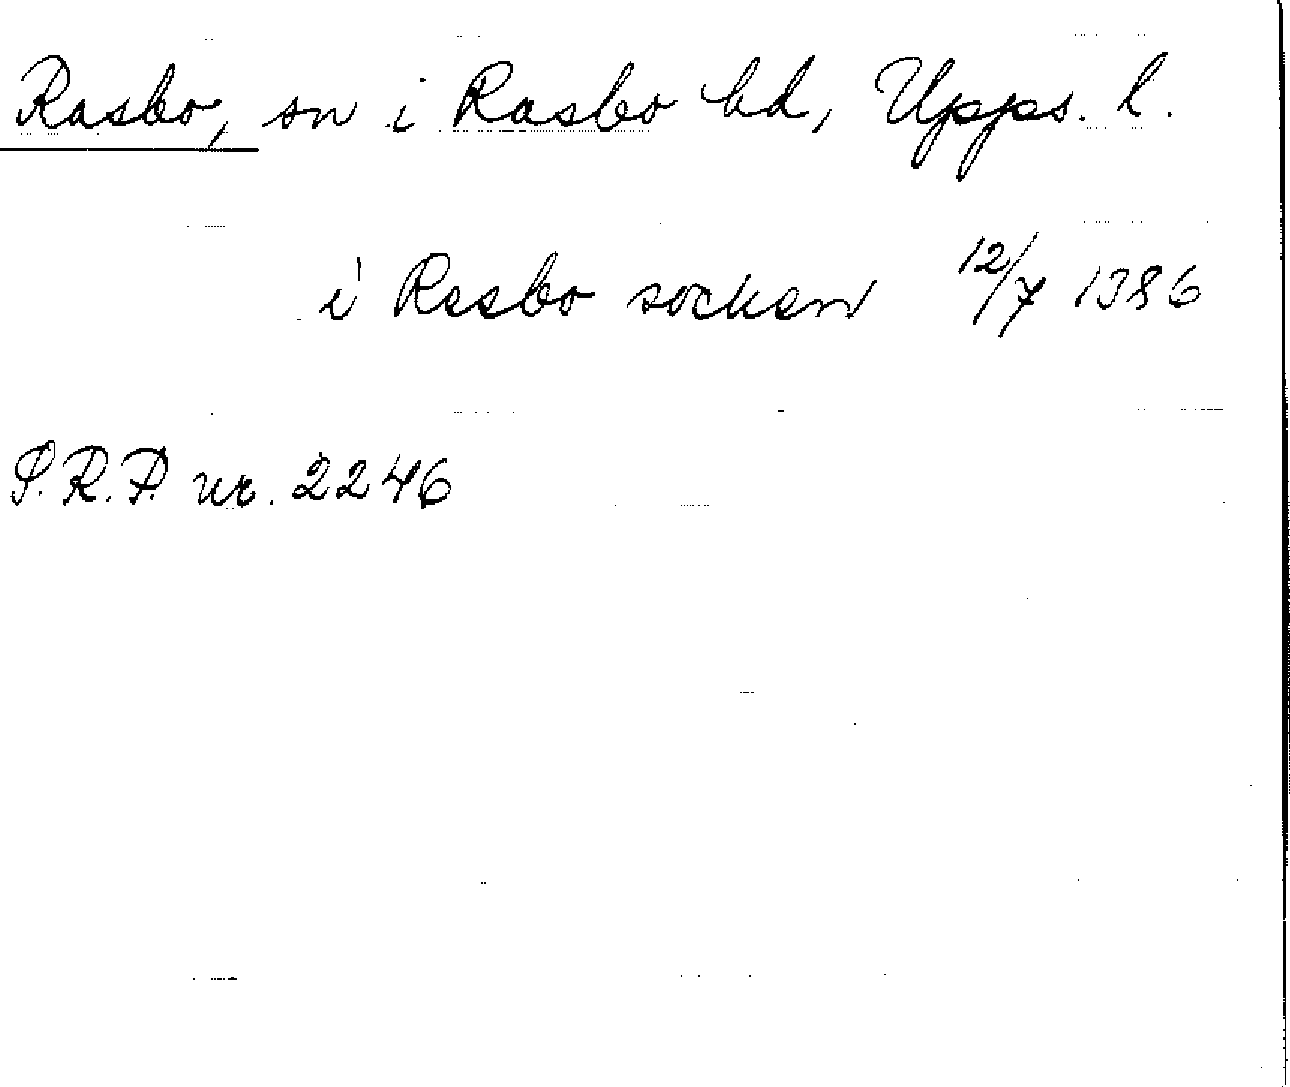 Rasbo, sn i Rasbo hd, Upps. l.
i Rasbo socken 12/7 1386
S.R.P. nr. 2246